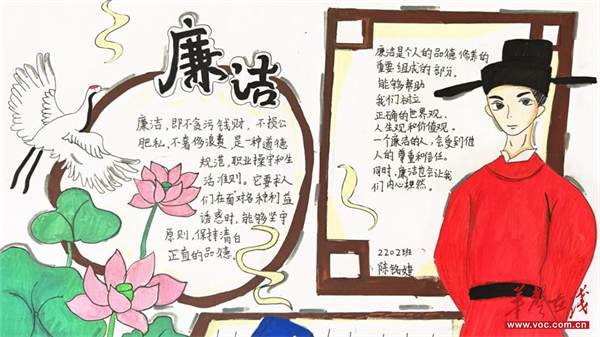 廉洁
廉洁,即不贪污钱财,不损公
肥私,不奢侈浪费,是一种道德
规范,职业操守和生
活准则。它要求人
们在面对各种利益
诱惑时,能够坚守
原则,保持清白
正直的品德。
廉洁是个人的品德修养的
重要组成的部分,
能够帮助
我们树立
正确的世界观、
人生观和价值观。
一个廉洁的人,会受到他
人的尊重和信任。
同时,廉洁也会让我
们内心坦然。
2202班
陈
华声在线
www.voc.com.cn